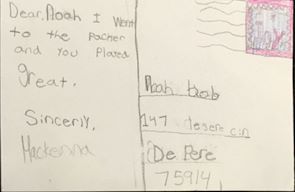 Dear, Noah I Went
to the Pacher
and You Plared
great.
Sincerly,
Mackenna
Noah
147 cin
De Pere
75914